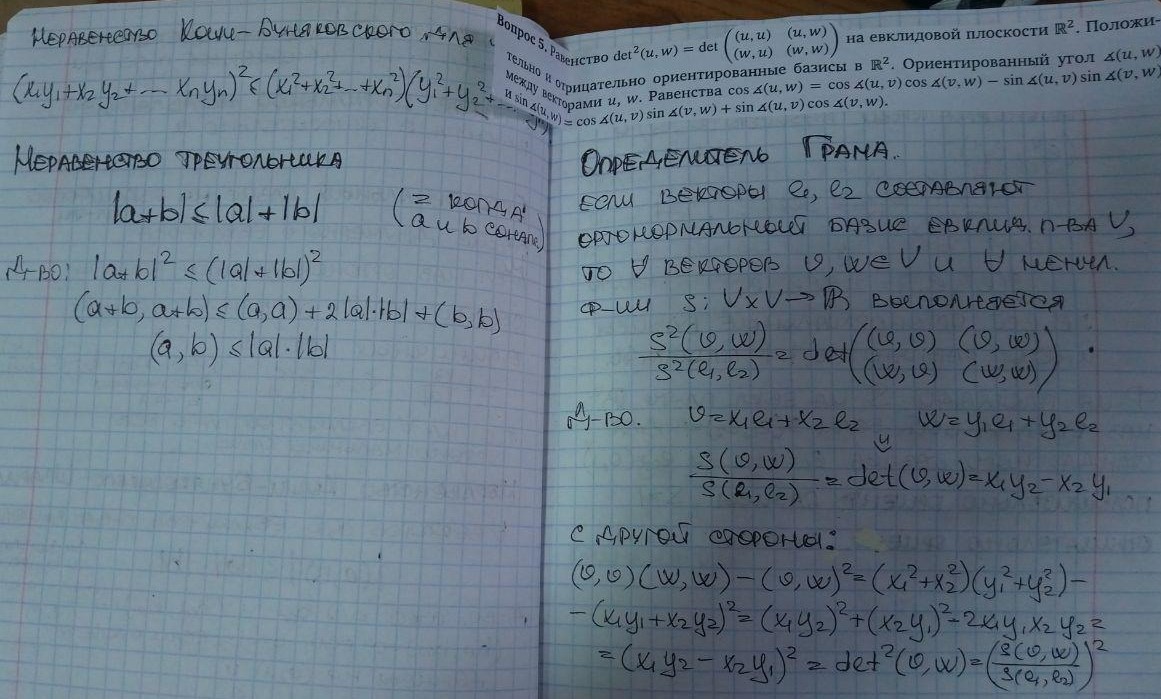 Неравенство Коши-Буняковского для
(x₁y₁+x₂y₂+... xₙyₙ)² ≤ (x₁²+x₂²+...+xₙ²)(y₁²+y₂²+...
Неравенство треугольника
|a+b| ≤ |a|+|b| (= когда
a и b сонапр)
Д-во: |a+b|² ≤ (|a|+|b|)²
(a+b, a+b) ≤ (a,a) + 2|a|·|b| + (b,b)
(a,b) ≤ |a|·|b|
Вопрос 5. Равенство det²(u, w) = det ((u, u) (u, w)
(w, u) (w, w)) на евклидовой плоскости ℝ². Положи-
тельно и отрицательно ориентированные базисы в ℝ². Ориентированный угол ∡(u, w)
между векторами u, w. Равенства cos ∡(u, w) = cos ∡(u, v) cos ∡(v, w) − sin ∡(u, v) sin ∡(v, w)
и sin ∡(u, w) = cos ∡(u, v) sin ∡(v, w) + sin ∡(u, v) cos ∡(v, w).
Определитель Грама.
Если векторы e₁, e₂ составляют
ортонормальный базис евклид. п-ва V,
то ∀ векторов v, w ∈ V и ∀ менул.
ф-ии s: V×V → ℝ, выполняется
s²(v, w) / s²(e₁, e₂) = det((v, v) (v, w)
(w, v) (w, w)).
Д-во. v = x₁e₁ + x₂e₂ w = y₁e₁ + y₂e₂
⇓
s(v, w) / s(e₁, e₂) = det(v, w) = x₁y₂ − x₂y₁
С другой стороны:
(v, v)(w, w) − (v, w)² = (x₁²+x₂²)(y₁²+y₂²) −
− (x₁y₁+x₂y₂)² = (x₁y₂)² + (x₂y₁)² − 2x₁y₁x₂y₂ =
= (x₁y₂ − x₂y₁)² = det²(v, w) = (s(v, w) / s(e₁, e₂))²